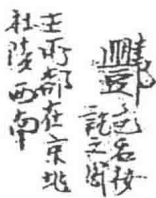 酆 邑名按
説文周
王所都在京兆
杜陵西南